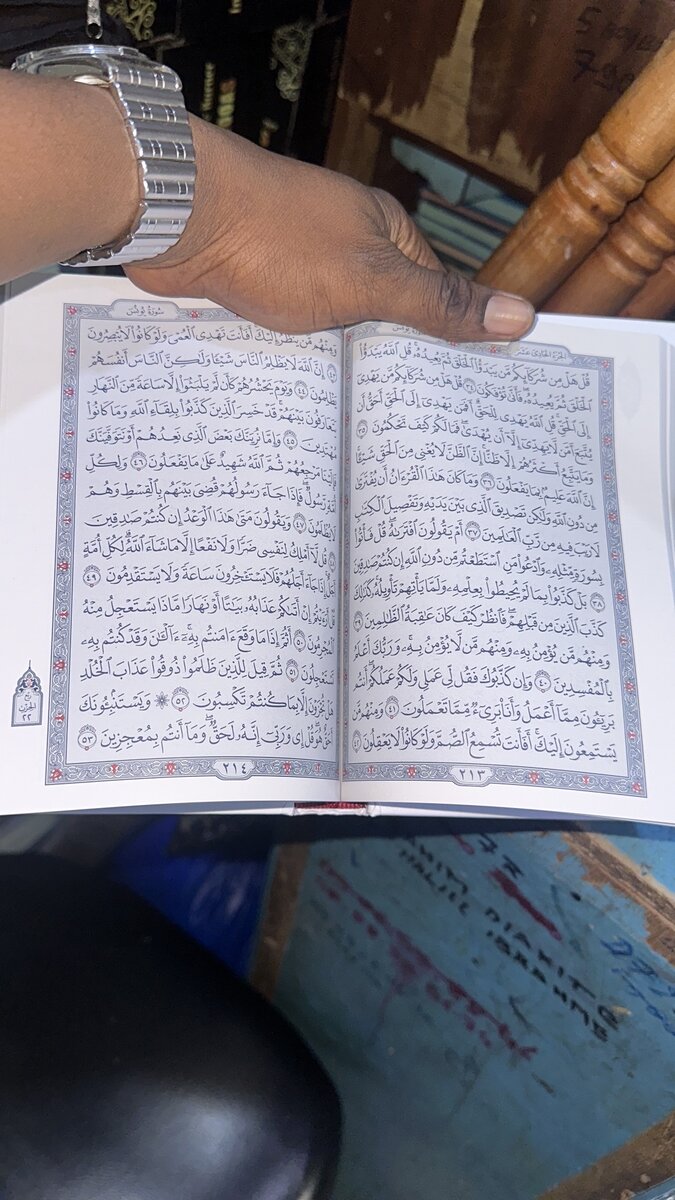 الجزء الحادي عشر
سورة يونس
قُلْ هَلْ مِن شُرَكَآئِكُم مَّن يَبْدَؤُا۟ ٱلْخَلْقَ ثُمَّ يُعِيدُهُۥ ۚ قُلِ ٱللَّهُ يَبْدَؤُا۟
ٱلْخَلْقَ ثُمَّ يُعِيدُهُۥ ۖ فَأَنَّىٰ تُؤْفَكُونَ ٣٤ قُلْ هَلْ مِن شُرَكَآئِكُم مَّن يَهْدِىٓ
إِلَى ٱلْحَقِّ ۚ قُلِ ٱللَّهُ يَهْدِى لِلْحَقِّ ۗ أَفَمَن يَهْدِىٓ إِلَى ٱلْحَقِّ أَحَقُّ أَن
يُتَّبَعَ أَمَّن لَّا يَهِدِّىٓ إِلَّآ أَن يُهْدَىٰ ۖ فَمَا لَكُمْ كَيْفَ تَحْكُمُونَ ٣٥
وَمَا يَتَّبِعُ أَكْثَرُهُمْ إِلَّا ظَنًّا ۚ إِنَّ ٱلظَّنَّ لَا يُغْنِى مِنَ ٱلْحَقِّ شَيْـًٔا ۚ
إِنَّ ٱللَّهَ عَلِيمٌۢ بِمَا يَفْعَلُونَ ٣٦ وَمَا كَانَ هَٰذَا ٱلْقُرْءَانُ أَن يُفْتَرَىٰ
مِن دُونِ ٱللَّهِ وَلَٰكِن تَصْدِيقَ ٱلَّذِى بَيْنَ يَدَيْهِ وَتَفْصِيلَ ٱلْكِتَٰبِ
لَا رَيْبَ فِيهِ مِن رَّبِّ ٱلْعَٰلَمِينَ ٣٧ أَمْ يَقُولُونَ ٱفْتَرَىٰهُ ۖ قُلْ فَأْتُوا۟
بِسُورَةٍ مِّثْلِهِۦ وَٱدْعُوا۟ مَنِ ٱسْتَطَعْتُم مِّن دُونِ ٱللَّهِ إِن كُنتُمْ صَٰدِقِينَ
٣٨ بَلْ كَذَّبُوا۟ بِمَا لَمْ يُحِيطُوا۟ بِعِلْمِهِۦ وَلَمَّا يَأْتِهِمْ تَأْوِيلُهُۥ ۚ كَذَٰلِكَ
كَذَّبَ ٱلَّذِينَ مِن قَبْلِهِمْ ۖ فَٱنظُرْ كَيْفَ كَانَ عَٰقِبَةُ ٱلظَّٰلِمِينَ ٣٩
وَمِنْهُم مَّن يُؤْمِنُ بِهِۦ وَمِنْهُم مَّن لَّا يُؤْمِنُ بِهِۦ ۚ وَرَبُّكَ أَعْلَمُ
بِٱلْمُفْسِدِينَ ٤٠ وَإِن كَذَّبُوكَ فَقُل لِّى عَمَلِى وَلَكُمْ عَمَلُكُمْ ۖ أَنتُم
بَرِيٓـُٔونَ مِمَّآ أَعْمَلُ وَأَنَا۠ بَرِىٓءٌ مِّمَّا تَعْمَلُونَ ٤١ وَمِنْهُم مَّن
يَسْتَمِعُونَ إِلَيْكَ ۚ أَفَأَنتَ تُسْمِعُ ٱلصُّمَّ وَلَوْ كَانُوا۟ لَا يَعْقِلُونَ ٤٢
٢١٣
سورة يونس
وَمِنْهُم مَّن يَنظُرُ إِلَيْكَ ۚ أَفَأَنتَ تَهْدِى ٱلْعُمْىَ وَلَوْ كَانُوا۟ لَا يُبْصِرُونَ
إِنَّ ٱللَّهَ لَا يَظْلِمُ ٱلنَّاسَ شَيْـًٔا وَلَٰكِنَّ ٱلنَّاسَ أَنفُسَهُمْ
يَظْلِمُونَ ٤٤ وَيَوْمَ يَحْشُرُهُمْ كَأَن لَّمْ يَلْبَثُوٓا۟ إِلَّا سَاعَةً مِّنَ ٱلنَّهَارِ
يَتَعَارَفُونَ بَيْنَهُمْ ۚ قَدْ خَسِرَ ٱلَّذِينَ كَذَّبُوا۟ بِلِقَآءِ ٱللَّهِ وَمَا كَانُوا۟
مُهْتَدِينَ ٤٥ وَإِمَّا نُرِيَنَّكَ بَعْضَ ٱلَّذِى نَعِدُهُمْ أَوْ نَتَوَفَّيَنَّكَ
فَإِلَيْنَا مَرْجِعُهُمْ ثُمَّ ٱللَّهُ شَهِيدٌ عَلَىٰ مَا يَفْعَلُونَ ٤٦ وَلِكُلِّ
أُمَّةٍ رَّسُولٌ ۖ فَإِذَا جَآءَ رَسُولُهُمْ قُضِىَ بَيْنَهُم بِٱلْقِسْطِ وَهُمْ
لَا يُظْلَمُونَ ٤٧ وَيَقُولُونَ مَتَىٰ هَٰذَا ٱلْوَعْدُ إِن كُنتُمْ صَٰدِقِينَ
قُل لَّآ أَمْلِكُ لِنَفْسِى ضَرًّا وَلَا نَفْعًا إِلَّا مَا شَآءَ ٱللَّهُ ۗ لِكُلِّ أُمَّةٍ
أَجَلٌ ۚ إِذَا جَآءَ أَجَلُهُمْ فَلَا يَسْتَـْٔخِرُونَ سَاعَةً ۖ وَلَا يَسْتَقْدِمُونَ ٤٩
قُلْ أَرَءَيْتُمْ إِنْ أَتَىٰكُمْ عَذَابُهُۥ بَيَٰتًا أَوْ نَهَارًا مَّاذَا يَسْتَعْجِلُ مِنْهُ
ٱلْمُجْرِمُونَ ٥٠ أَثُمَّ إِذَا مَا وَقَعَ ءَامَنتُم بِهِۦٓ ۚ ءَآلْـَٰٔنَ وَقَدْ كُنتُم بِهِۦ
تَسْتَعْجِلُونَ ٥١ ثُمَّ قِيلَ لِلَّذِينَ ظَلَمُوا۟ ذُوقُوا۟ عَذَابَ ٱلْخُلْدِ
هَلْ تُجْزَوْنَ إِلَّا بِمَا كُنتُمْ تَكْسِبُونَ ٥٢ ۞ وَيَسْتَنۢبِـُٔونَكَ
أَحَقٌّ هُوَ ۖ قُلْ إِى وَرَبِّىٓ إِنَّهُۥ لَحَقٌّ ۖ وَمَآ أَنتُم بِمُعْجِزِينَ ٥٣
ربع
الحزب
٢٢
٢١٤
DIAKIT